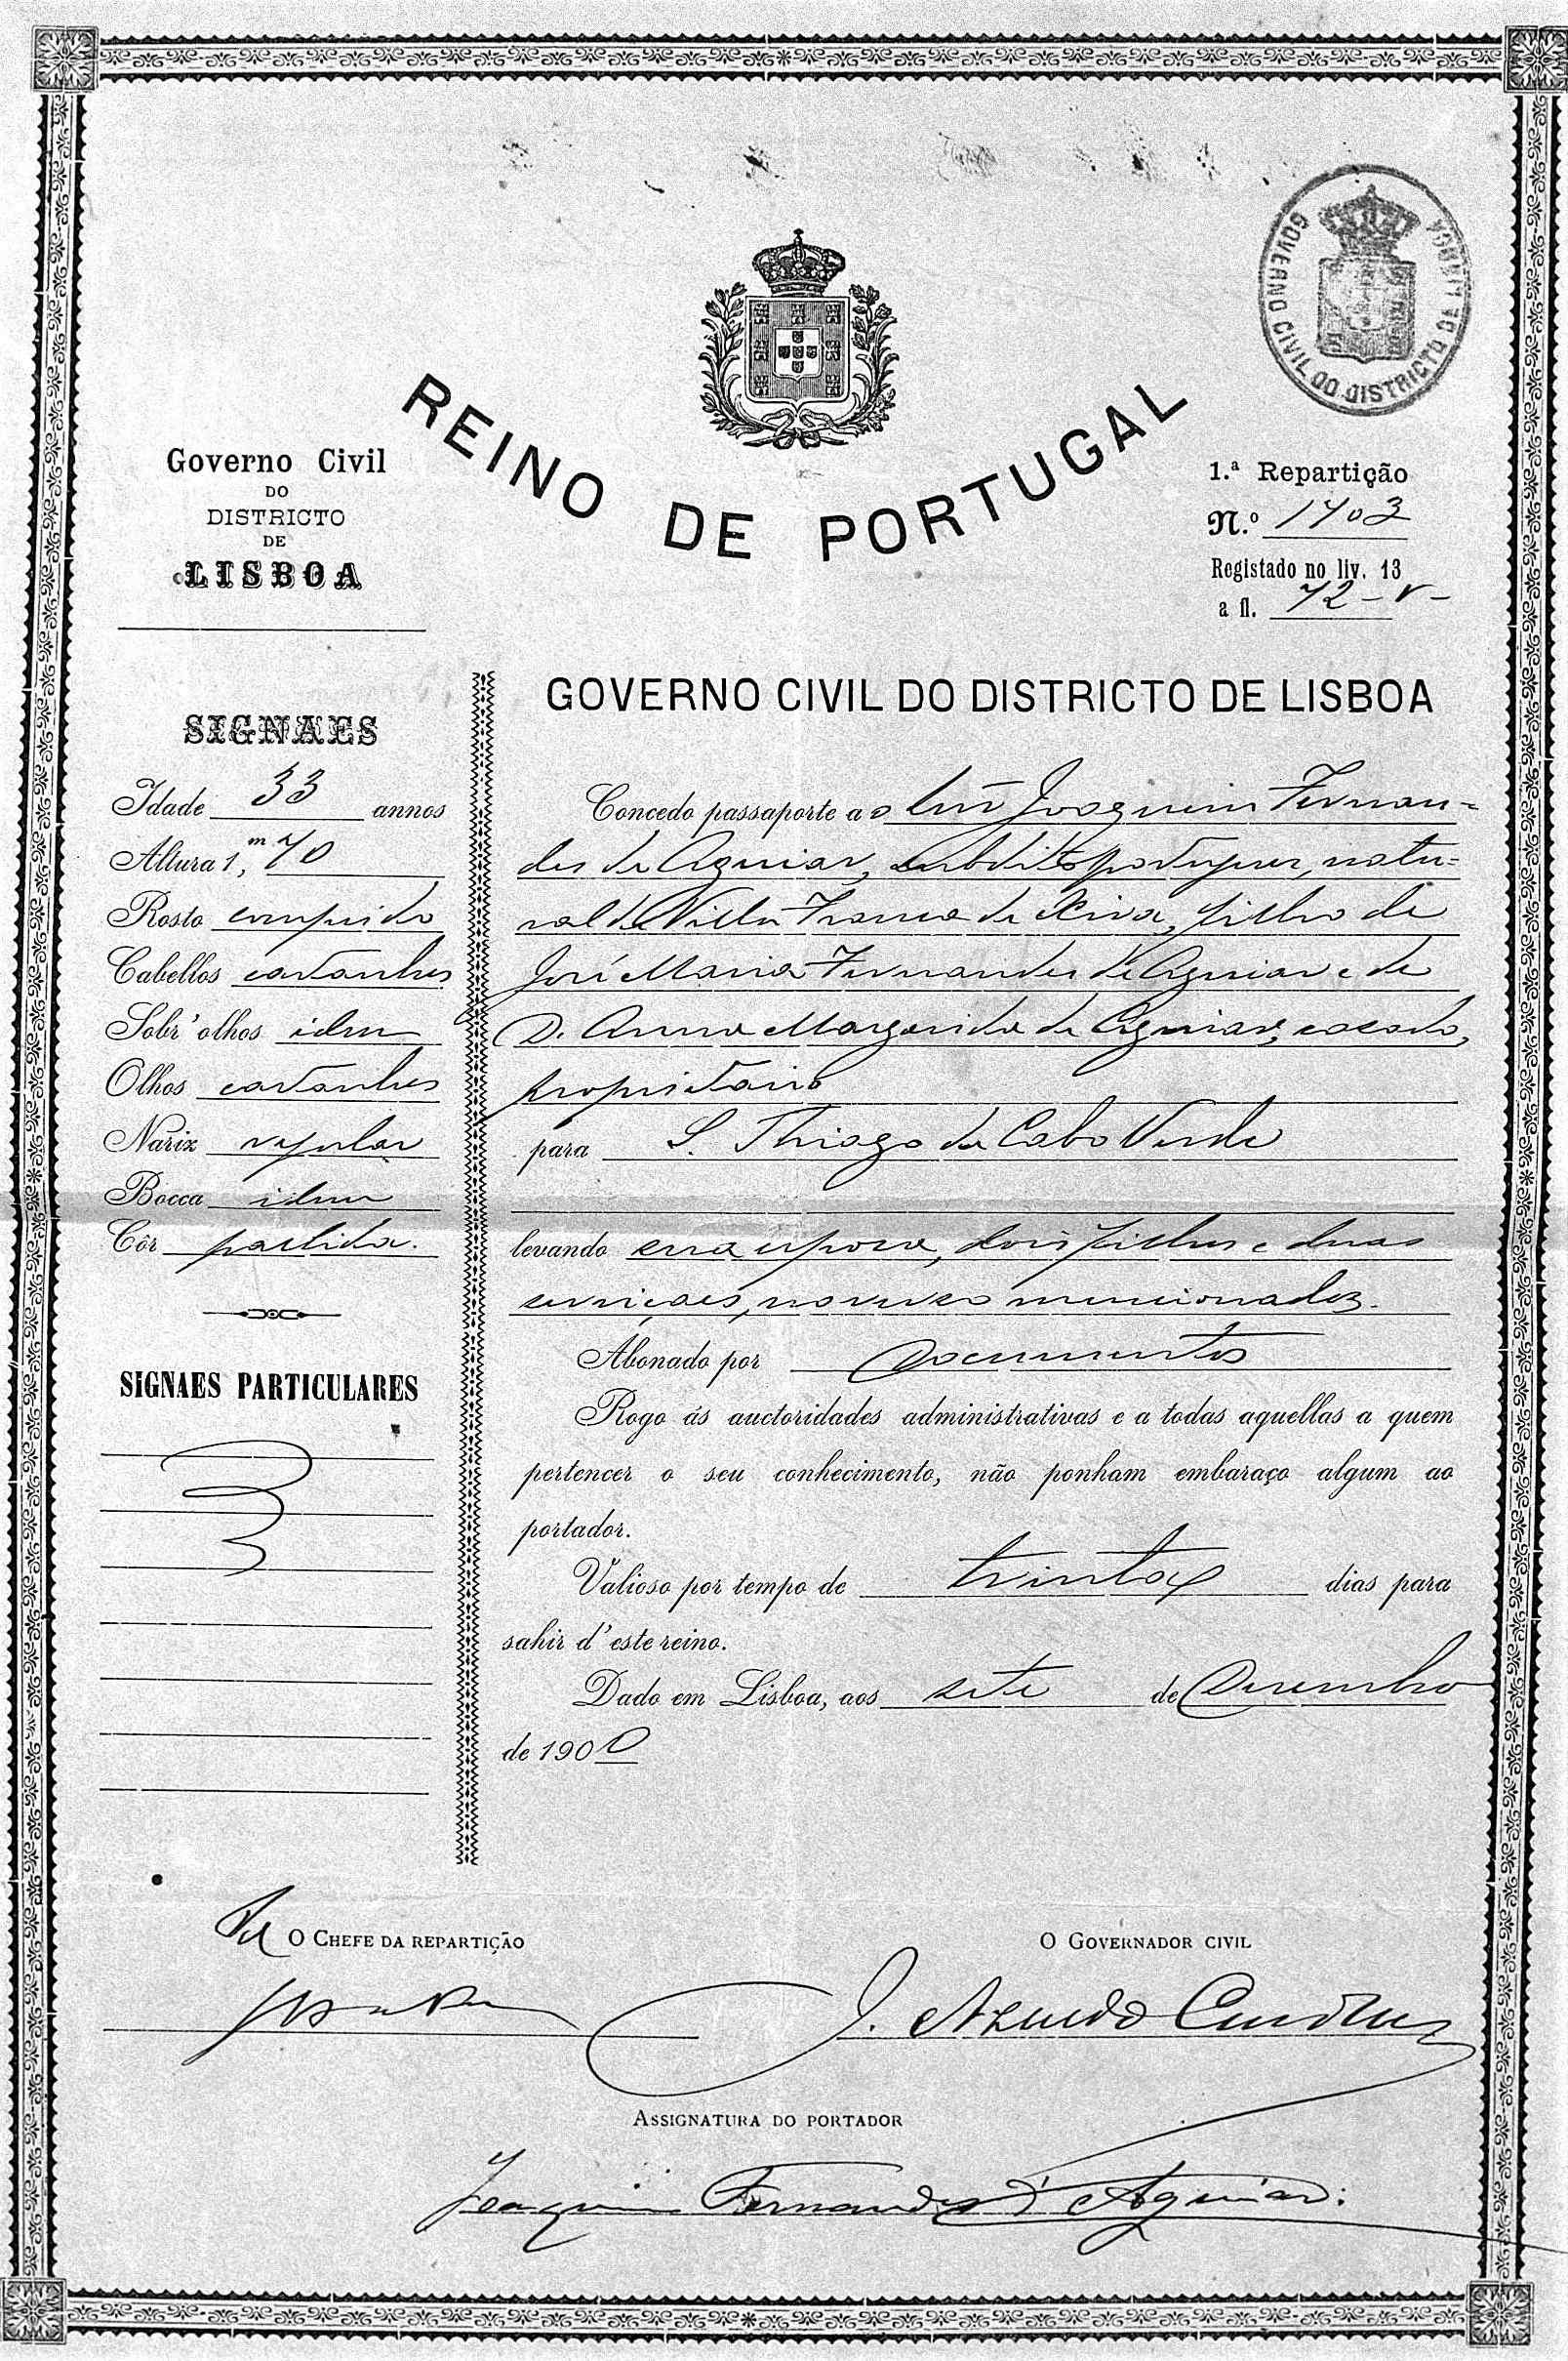 GOVERNO CIVIL DO DISTRICTO DE LISBOA
REINO DE PORTUGAL
Governo Civil
DO
DISTRICTO
DE
LISBOA
1.ª Repartição
N.º 1403
Registado no liv. 13
a fl. 72-v-
SIGNAES
Idade 33 annos
Altura 1,m 70
Rosto comprido
Cabellos castanhos
Sobr'olhos idem
Olhos castanhos
Nariz regular
Bocca idem
Côr pallida.
SIGNAES PARTICULARES
GOVERNO CIVIL DO DISTRICTO DE LISBOA
Concedo passaporte a o Joaquim Fernan-
des de Aguiar, subdito portuguez, natu-
ral de Villa Franca de Xira, filho de
José Maria Fernandes de Aguiar e de
D. Anna Margarida de Aguiar, casado,
proprietario
para S. Thiago de Cabo Verde
levando sua esposa, dois filhos e duas
serviçaes, no verso mencionados.
Abonado por Documentos
Rogo ás auctoridades administrativas e a todas aquellas a quem
pertencer o seu conhecimento, não ponham embaraço algum ao
portador.
Valioso por tempo de trinta dias para
sahir d'este reino.
Dado em Lisboa, aos sete de Dezembro
de 1900
O CHEFE DA REPARTIÇÃO
O GOVERNADOR CIVIL
J. Azevedo
ASSIGNATURA DO PORTADOR
Joaquim Fernandes d'Aguiar.